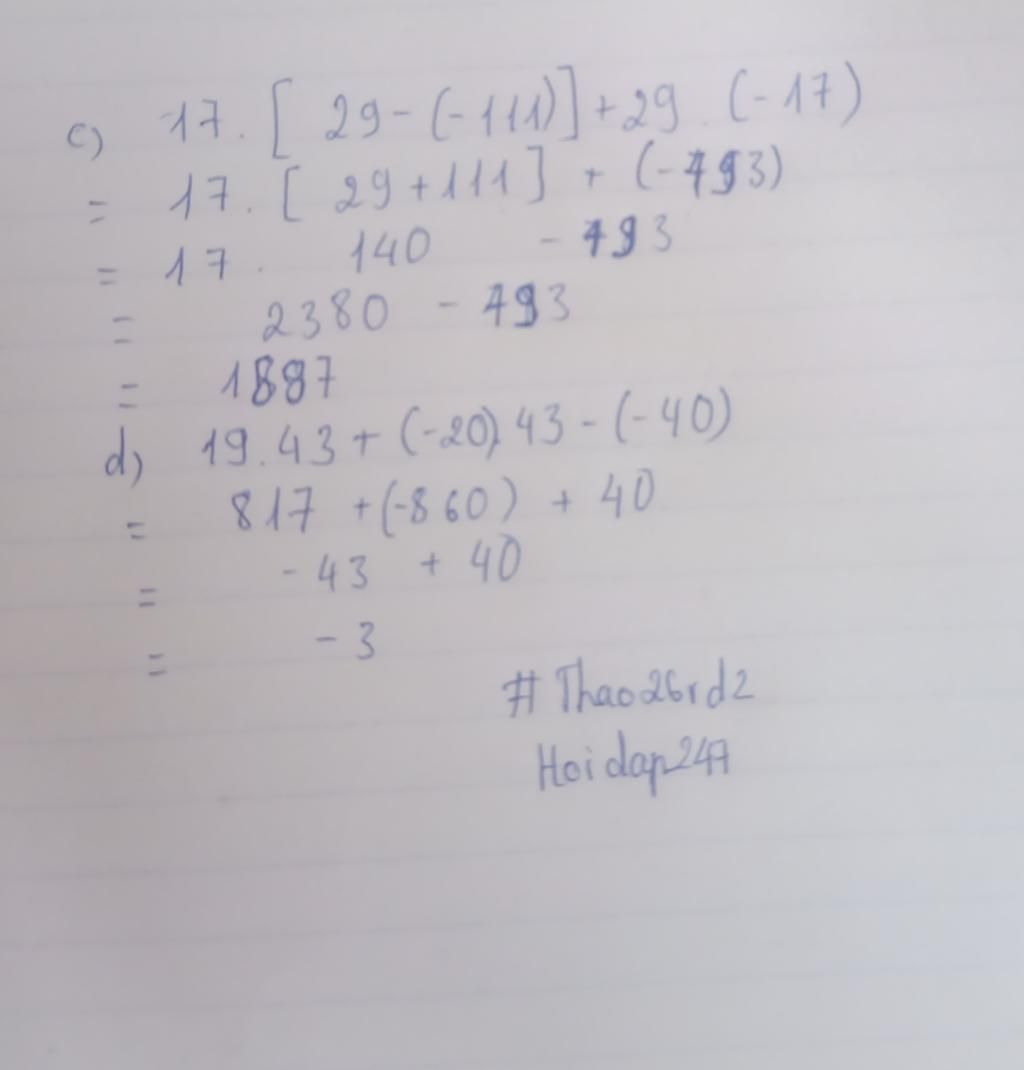 c) 17. [ 29 - (-111)] + 29 . (-17)
= 17. [ 29 + 111 ] + (-493)
= 17. 140 - 493
= 2380 - 493
= 1887
d) 19.43 + (-20).43 - (-40)
= 817 + (-860) + 40
= - 43 + 40
= - 3
# Thao26rd2
Hoidap247